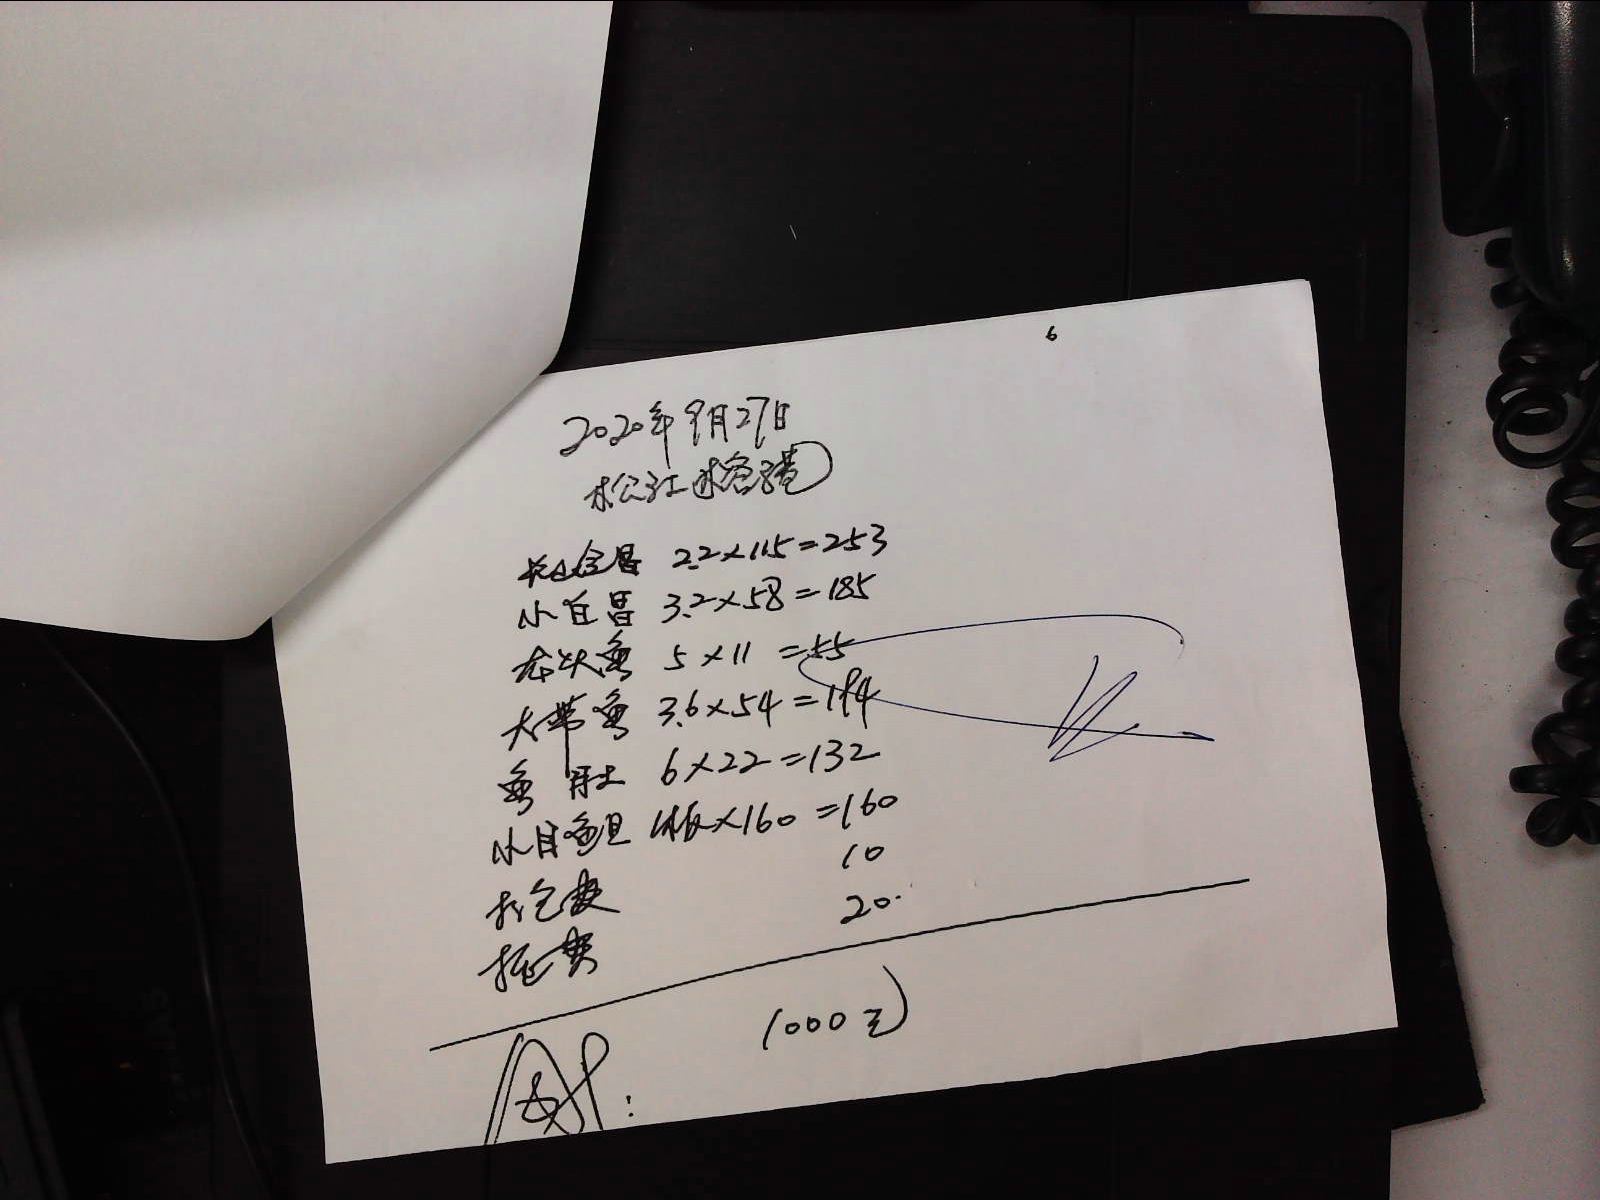 6
2020年9月27日
松江
2.2×115=253
小白昌 3.2×58=185
龙头鱼 5×11=55
大带鱼 3.6×54=194
鱼肚 6×22=132
小目鱼旦 1板×160=160
打包费 10
托费 20
1000元